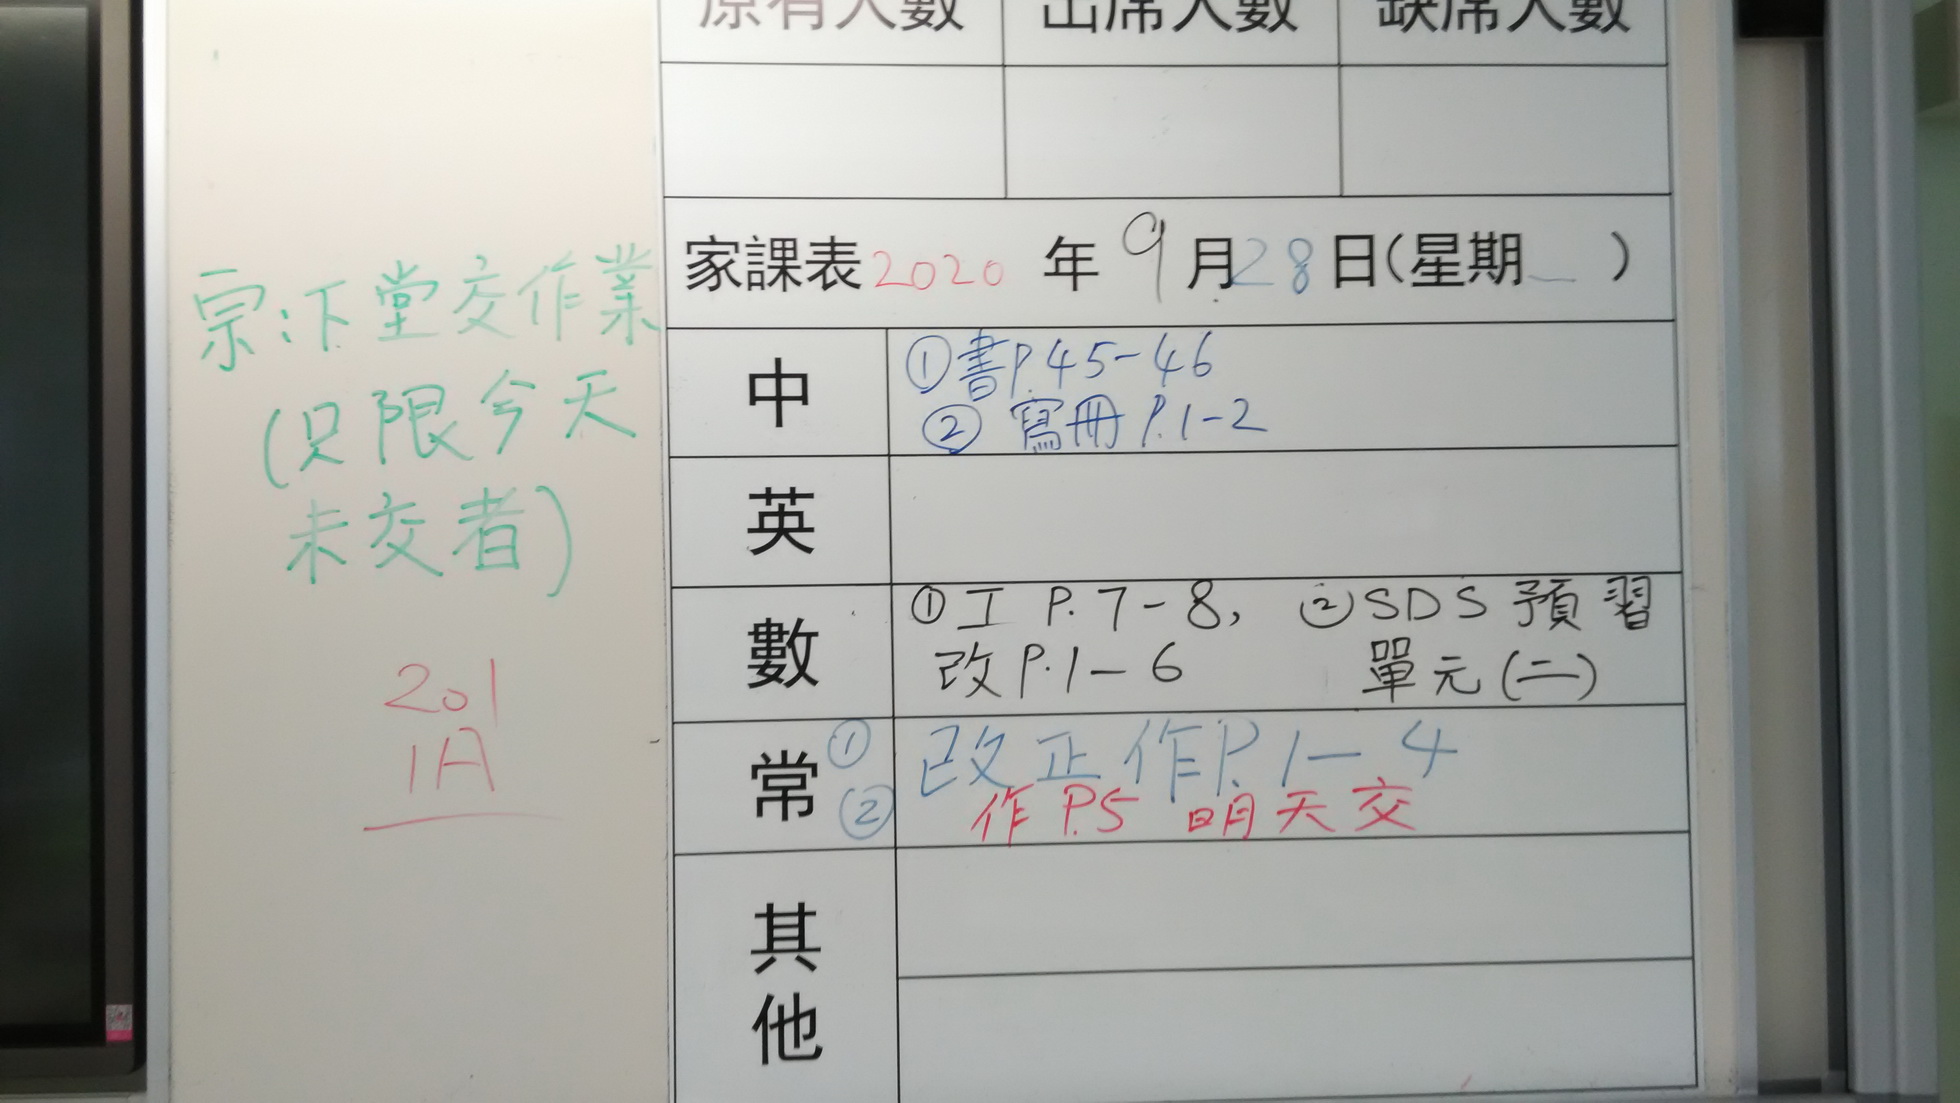 原有人數 出席人數 缺席人數
家課表 2020 年 9 月 28 日(星期一)
中
①書P.45-46
②寫冊P.1-2
英
數
①工 P.7-8, ②SDS預習
改P.1-6 單元(二)
常
① 改正作P.1-4
② 作P.5 明天交
其他
宗:下堂交作業
(只限今天
未交者)
201
1A